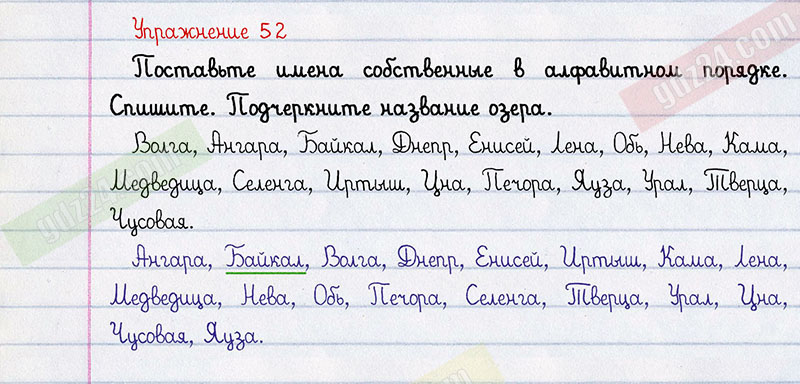 Упражнение 52
Поставьте имена собственные в алфавитном порядке.
Спишите. Подчеркните название озера.
Волга, Ангара, Байкал, Днепр, Енисей, Лена, Обь, Нева, Кама,
Медведица, Селенга, Иртыш, Цна, Печора, Яуза, Урал, Тверца,
Чусовая.
Ангара, Байкал, Волга, Днепр, Енисей, Иртыш, Кама, Лена,
Медведица, Нева, Обь, Печора, Селенга, Тверца, Урал, Цна,
Чусовая, Яуза.
gdz24.com
gdz24.com